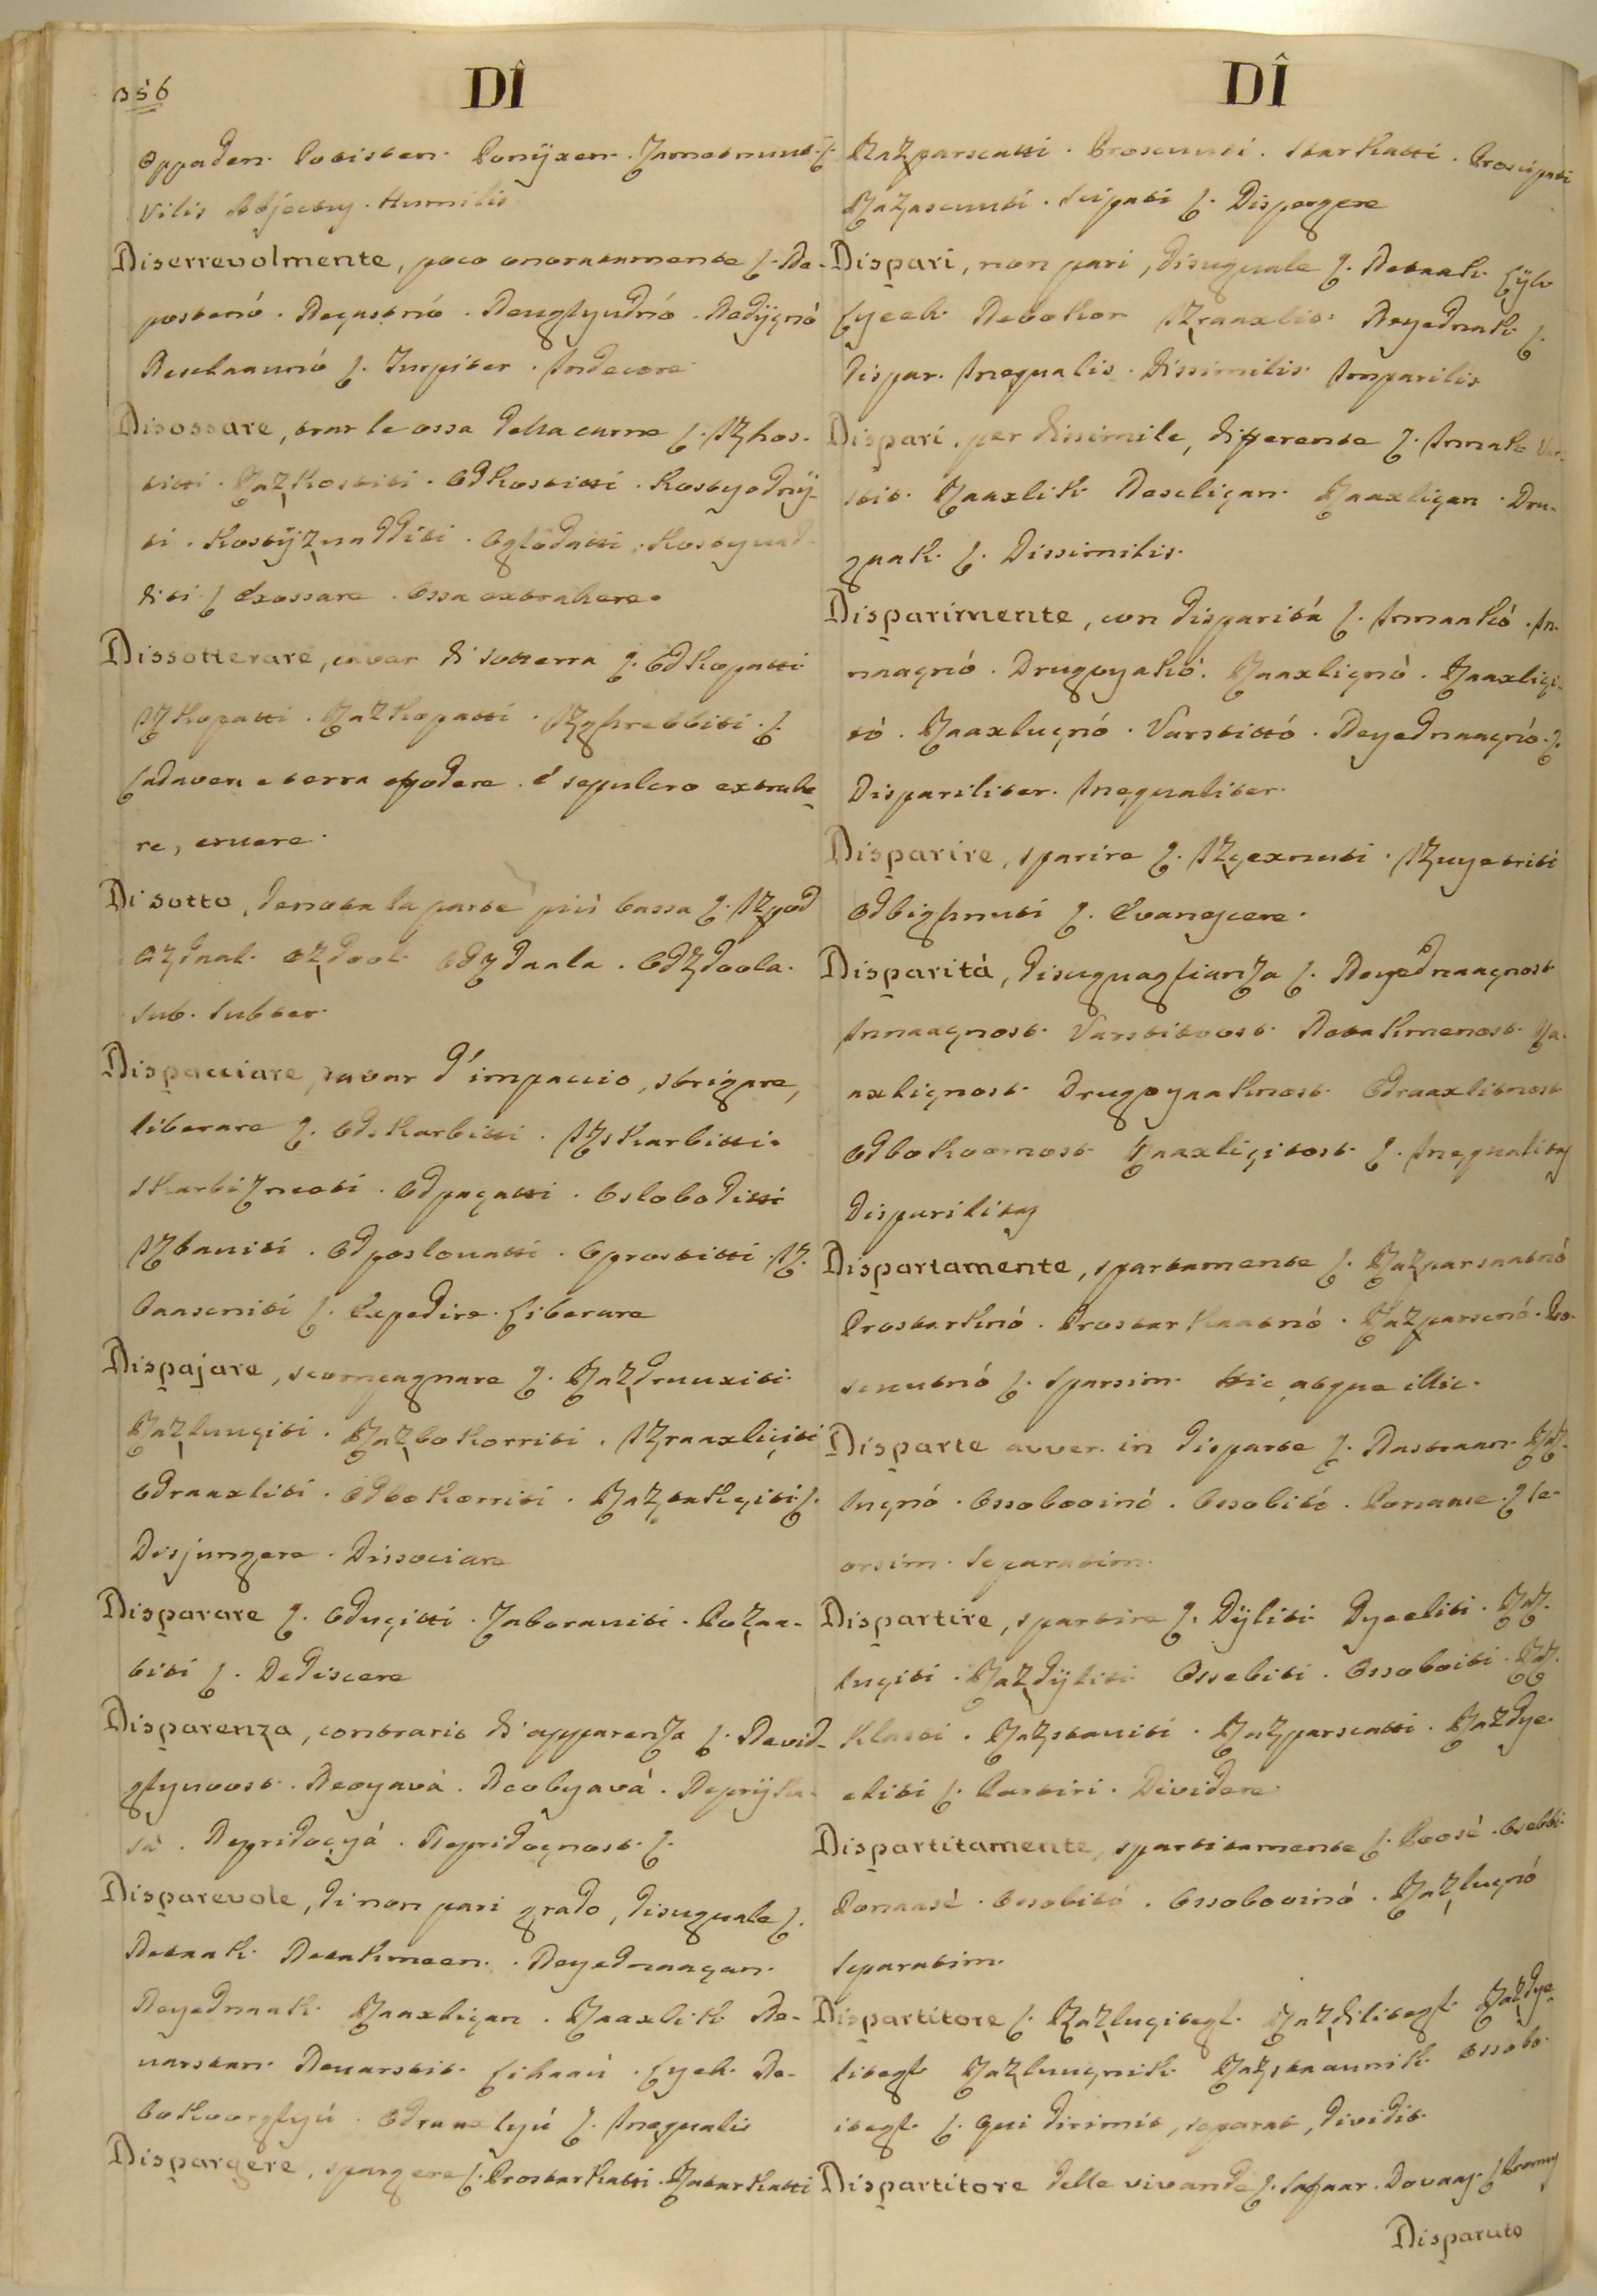 356
DÎ
oppaden. Potisten. Poniyxen. Zametnuut. f.
Vilis Abjectus. Humilis
Diserrevolmente, poco onoratamente f. Ne-
postenó. Neçastnó. Neuglyudnó. Nedijçnó
Neschaunó f. Turpiter. Indecore
Disossare, trar le ossa della carne f. Izkos-
titti. Razkostiti. Odkostitti. Kostyodnij-
ti. Kostijzvadditi. Oglodatti. Kostyvad-
diti f. Exossare. Ossa extrahere.
Dissotterare, cavar di sotterra f. Odkopatti
Izkopatti. Razkopatti. Izghrebbiti. f.
Cadaver e terra effodere. é sepulcro extrahe-
re, eruere.
Di sotto, denota la parte più bassa f. Izpod
Ozdaal. Ozdool. Odzdaala. Odzdoola.
Sub. Subter.
Dispacciare, cavar d'impaccio, strigare,
liberare f. Odskarbitti. Izskarbitti.
Skarbizneti. Odpaçatti. Osloboditti
Izbaviti. Odposlovatti. Oprostitti. Iz-
baasciti f. Expedire. Liberare
Dispajare, scompagnare f. Razdruuxiti
Razluuçiti. Razbokorriti. Izraaxliçiti
Odraaxliti. Odbokorriti. Raztakçiti f.
Disjungere. Dissociare
Disparare f. Oduçitti. Zaboraviti. Pozaa-
biti f. Dediscere
Disparenza, contrario di apparenza f. Nevid-
glyvoost. Neoyavà. Neobyavà. Neprijka-
sà. Nepridoçyà. Nepridoçnost. f.
Disparevole, di non pari grado, disuguale f.
Netaak. Netakmeen. Neyednaaçan.
Neyednaak. Raaxliçan. Raaxlik. Ne-
varstan. Nevarstit. Lihaaú. Lyeh. Ne-
bokoorglyú. Odraaxlyú f. Inequalis
Dispargere, spargere f. Prostarkatti. Ratarkatti
DÎ
Razparscatti. Proscuuti. Starkatti. Proscipati
Razascuuti. Scipati f. Dispergere
Dispari, non pari, disuguale f. Netaak. Lijh
Lyeeh. Nebokor. Izraaxlit. Neyednak. f.
Dispar. Inequalis. Dissimilis. Imparilis
Dispari, per dissimile, differente f. Innak Var-
stit. Raaxlik. Nescliçan. Raaxliçan. Dru-
gaak. f. Dissimilis.
Disparimente, con disparità f. Innaakó. In-
naaçnó. Drugoyakó. Raaxliçnò. Raaxliçi-
tó. Raaxluçnó. Varstittó. Neyednaaçnó. f.
Dispariliter. Inequaliter.
Disparire, sparire f. Izçexnuti. Izuyetriti
Odbighnuti f. Evanescere.
Disparità, disuguaglianza f. Neyednaaçnost
Innaaçnost. Varstitoost. Netakmenost. Ra-
axliçnost. Drugoyaaknost. Odraaxlitnost
Odbokoornost. Raaxliçitost f. Inequalitas
Disparilitas
Dispartamente, spartamente f. Razparsaatnó
Prostarknó. Prostarkaatnó. Razparscnó. Pro-
scuutnó f. Sparsim. Hic atque illic.
Disparte avver. in disparte f. Nastraan. Raz-
luçnó. Ossobooinó. Ossobitó. Ponaase. f Se-
orsim. Separatim.
Dispartire, spartire f. Dijliti. Dyeeliti. Raz-
luçiti. Razdijliti. Ossebiti. Ossoboiti. Raz-
klasti. Razstaviti. Razparscatti. Razdye-
eliti f. Partiri. Dividere.
Dispartitamente, spartitamente f. Poosè. Osebbi.
Ponaasè. Ossobitó. Ossobooinó. Razluçnó
Separatim.
Dispartitore f. Razluçitegl. Razdilitegl. Razdye-
litegl. Razluuçnik. Razstaavnik. Ossobo-
itegl. f. Qui dirimit, separat, dividit.
Dispartitore delle vivande f.
Disparuto